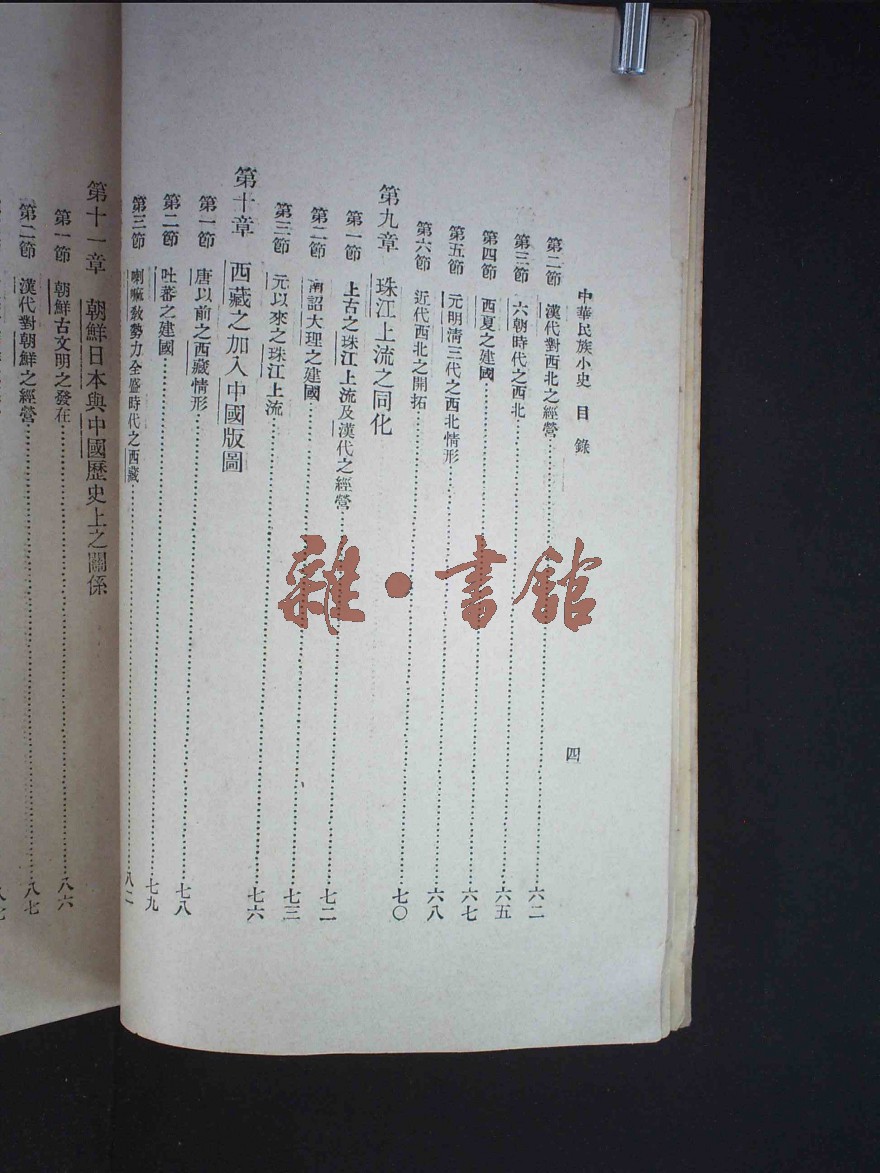 中華民族小史 目錄 四
第二節 漢代對西北之經營 六二
第三節 六朝時代之西北 六五
第四節 西夏之建國 六七
第五節 元明清三代之西北情形 六八
第六節 近代西北之開拓 七〇
第九章 珠江上流之同化
第一節 上古之珠江上流及漢代之經營 七二
第二節 南詔大理之建國 七三
第三節 元以來之珠江上流 七六
第十章 西藏之加入中國版圖
第一節 唐以前之西藏情形 七八
第二節 吐蕃之建國 七九
第三節 喇嘛教勢力全盛時代之西藏 八二
第十一章 朝鮮日本與中國歷史上之關係
第一節 朝鮮古文明之發在 八六
第二節 漢代對朝鮮之經營 八七
雜·書館